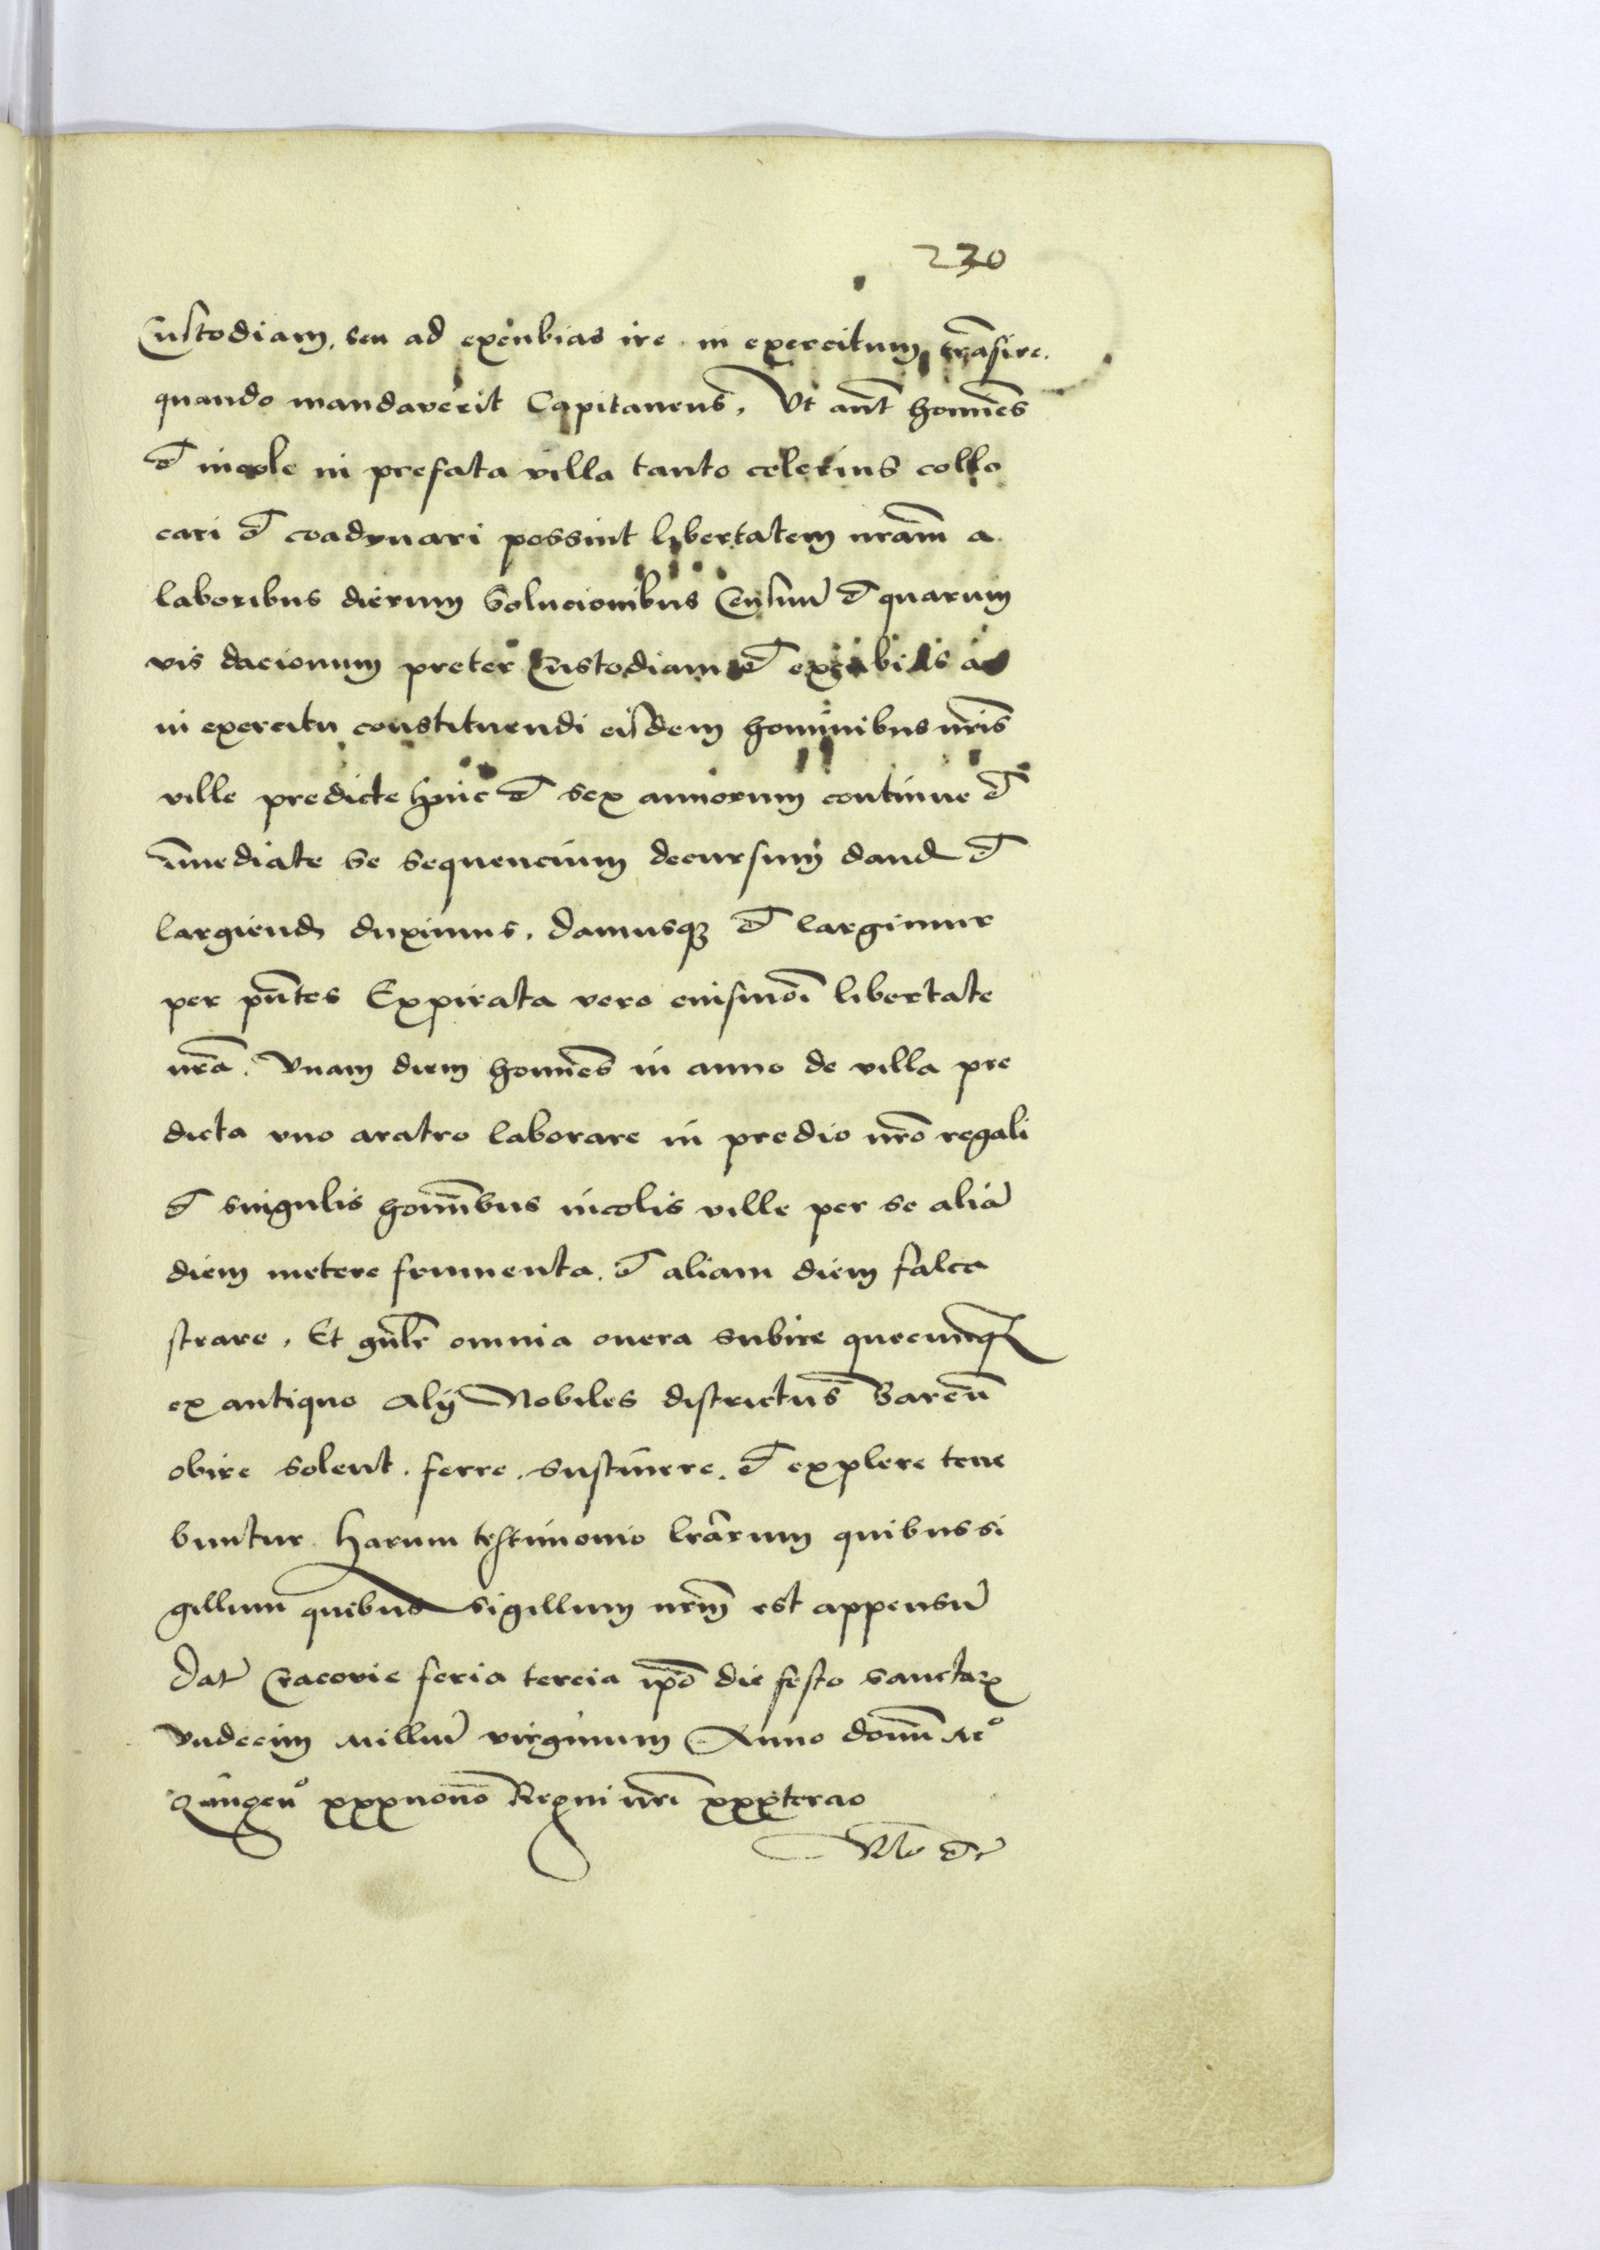 230
Custodiam, seu ad excubias ire. in exercitum trāsire.
quando mandaverit Capitaneus, Vt aūt homīes
et incole in prefata villa tanto celerius collo
cari et coadvnari possint libertatem nrām a
laboribus dierum solucionibus Censuū et quarum
vis dacionum preter Custodiam et excubias ac
in exercitu constituendi eisdem hominibus nrīs
ville predicte hinc et sex annorum continue et
īmediate se sequencium decursum dand et
largiend duximus, damusqȝ et largimur
per pn̄tes Expirata vero eiusmōi libertate
nrā. Vnam diem homīes in anno de villa pre
dicta vno aratro laborare in predio nrō regali
et singulis homībus incolis ville per se aliā
diem metere frumenta. et aliam diem falca
strare. Et gn̄lr omnia onera subire quecunqȝ
ex antiquo alij Nobiles districtus Barēn
obire solent. ferre. sustinere. et explere tene
buntur. Harum testimonio lrārum quibus si
gillum quibus sigillum nrm̄ est appensū
Dat Cracovie feria tercia ipō die festo sanctarꝫ
vndecim milliū virginum Anno domī Mᵒ
Quingenᵒ xxxnono Regni nrī xxxtercio